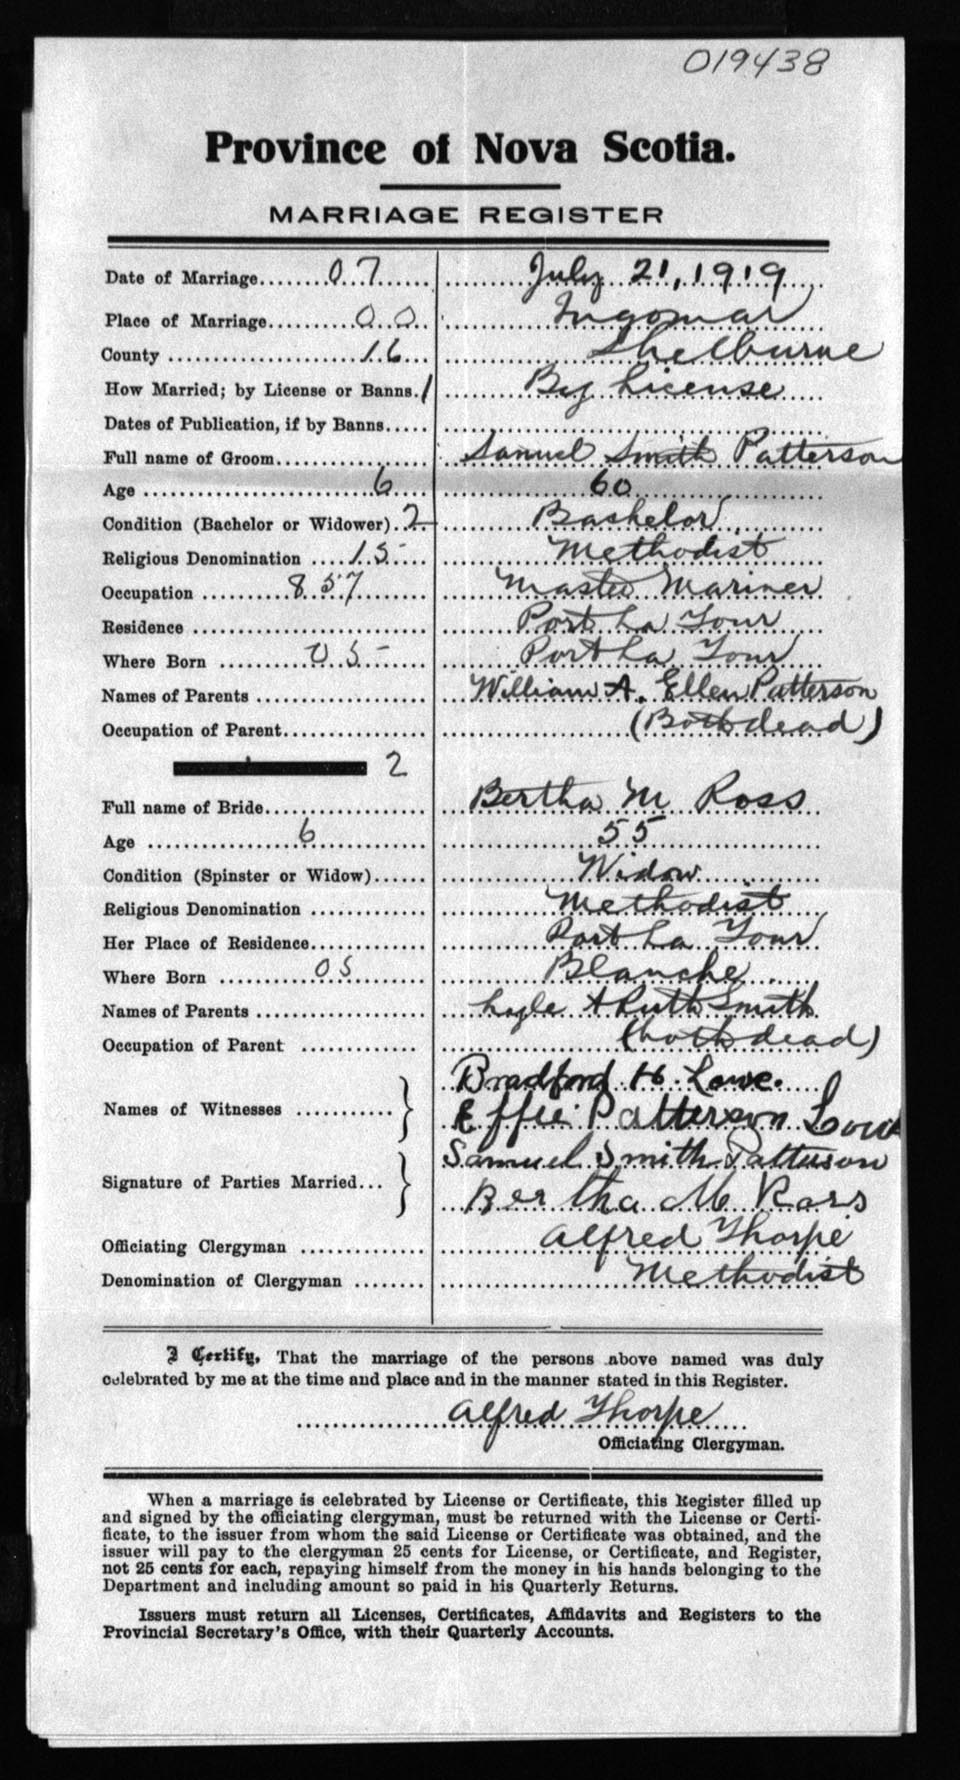 019438
Province of Nova Scotia.
MARRIAGE REGISTER
Date of Marriage........07...... July 21, 1919
Place of Marriage.........00.. Ingomar
County ..................16... Shelburne
How Married; by License or Banns.1 By License
Dates of Publication, if by Banns.....
Full name of Groom................ Samuel Smith Patterson
Age ......................6.... 60
Condition (Bachelor or Widower)..2 Bachelor
Religious Denomination ....15 Methodist
Occupation ..........857....... Master Mariner
Residence ........................ Port La Tour
Where Born ..........05 Port La Tour
Names of Parents ................. William A. Ellen Patterson
Occupation of Parent.............. (Both dead)
2
Full name of Bride................ Bertha M Ross
Age ................6............ 55
Condition (Spinster or Widow)...... Widow
Religious Denomination ............ Methodist
Her Place of Residence............ Port La Tour
Where Born ..........05 Blanche
Names of Parents ................. Lyle & Ruth Smith
Occupation of Parent ............ (both dead)
Bradford H. Lowe.
Names of Witnesses ........... } Effie Patterson Lowe
Samuel Smith Patterson
Signature of Parties Married... } Bertha M Ross
Officiating Clergyman ............. Alfred Thorpe
Denomination of Clergyman ........ Methodist
I Certify, That the marriage of the persons above named was duly
celebrated by me at the time and place and in the manner stated in this Register.
Alfred Thorpe
Officiating Clergyman.
When a marriage is celebrated by License or Certificate, this Register filled up
and signed by the officiating clergyman, must be returned with the License or Certi-
ficate, to the issuer from whom the said License or Certificate was obtained, and the
issuer will pay to the clergyman 25 cents for License, or Certificate, and Register,
not 25 cents for each, repaying himself from the money in his hands belonging to the
Department and including amount so paid in his Quarterly Returns.
Issuers must return all Licenses, Certificates, Affidavits and Registers to the
Provincial Secretary's Office, with their Quarterly Accounts.